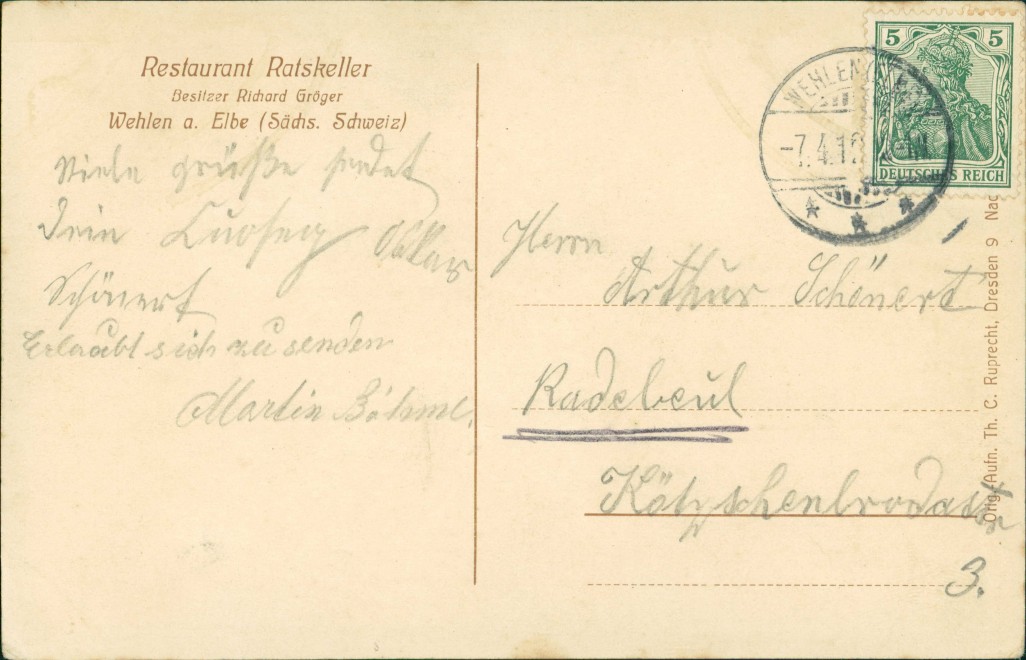 Restaurant Ratskeller
Besitzer Richard Gröger
Wehlen a. Elbe (Sächs. Schweiz)
Viele grüße sendet
Dein Oskar
Schönert
Erlaubt sich zu senden
Martin Böhme.
5 5
DEUTSCHES REICH
WEHLEN
-7.4.12
Herrn
Arthur Schönert
Radebeul
Kötzschenbrodastr
3.
Orig. Aufn. Th. C. Ruprecht, Dresden 9 Nac